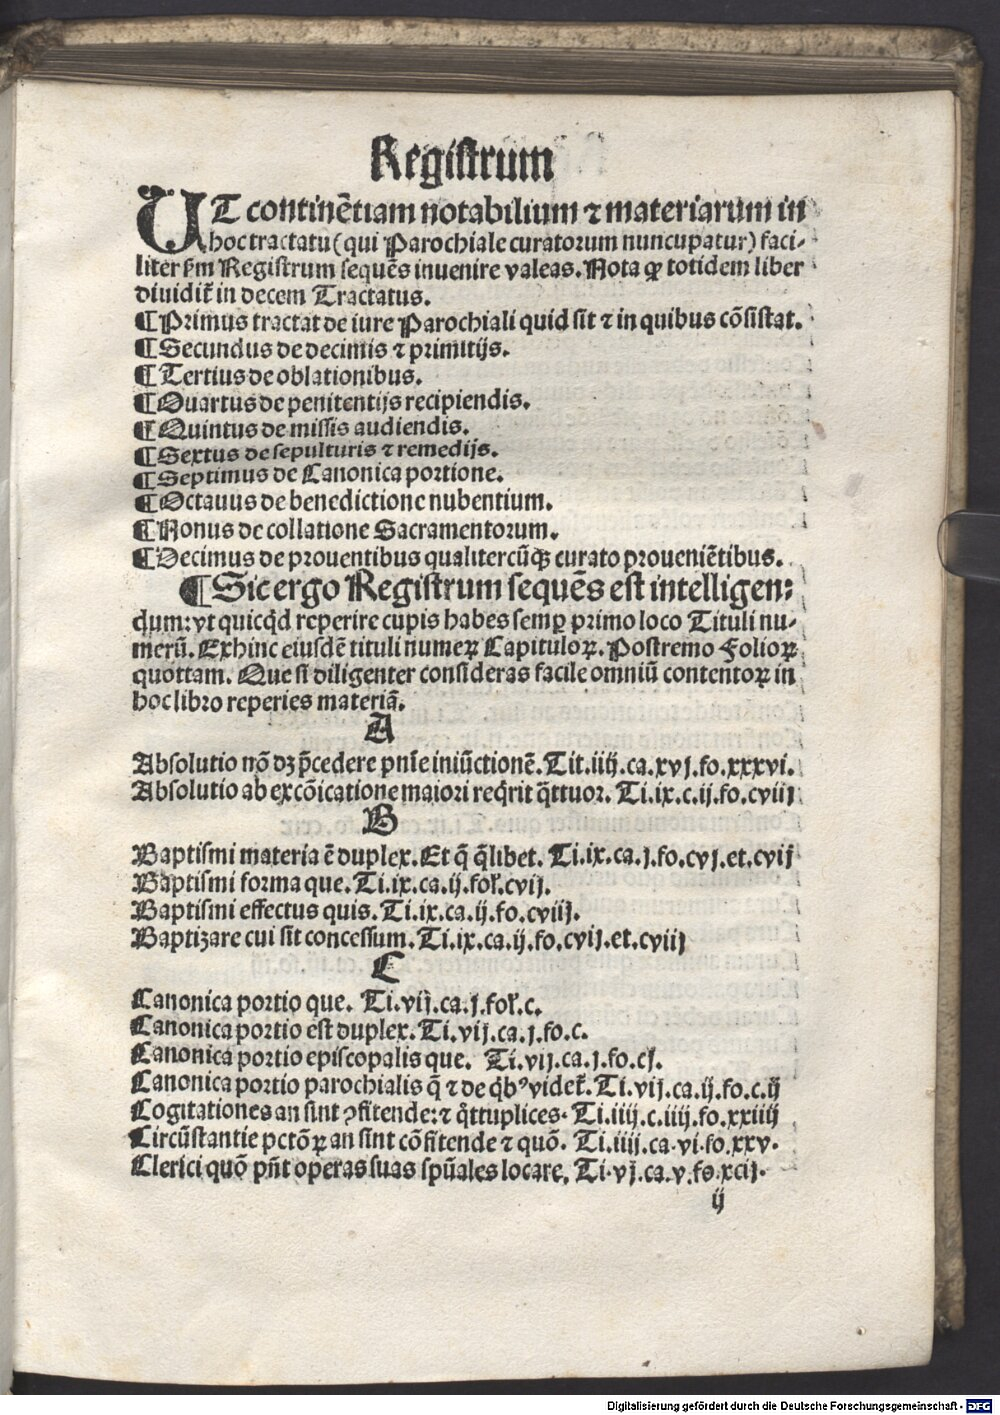 Registrum
UT continētiam notabilium ⁊ materiarum in
hoc tractatu (qui Parochiale curatorum nuncupatur) faci-
liter ẜm Registrum sequēs inuenire valeas. Nota ꝙ totidem liber
diuidit᷑ in decem Tractatus.
¶ Primus tractat de iure Parochiali quid sit ⁊ in quibus cōsistat.
¶ Secundus de decimis ⁊ primitijs.
¶ Tertius de oblationibus.
¶ Quartus de penitentijs recipiendis.
¶ Quintus de missis audiendis.
¶ Sextus de sepulturis ⁊ remedijs.
¶ Septimus de Canonica portione.
¶ Octauus de benedictione nubentium.
¶ Nonus de collatione Sacramentorum.
¶ Decimus de prouentibus qualitercūqꝫ curato proueniētibus.
¶ Sic ergo Registrum sequēs est intelligen:
dum: vt quicq̇d reperire cupis habes semꝑ primo loco Tituli nu-
merū. Exhinc eiusdē tituli numeꝝ Capituloꝝ. Postremo Folioꝝ
quottam. Que si diligenter consideras facile omniū contentoꝝ in
hoc libro reperies materiā.
A
Absolutio nō dꝫ p̄cedere pn̄ie iniūctionē. Tit. iiij. ca. xvj. fo. xxxvi.
Absolutio ab excōicatione maiori req̇rit q̄ttuor. Ti. ix. c. ij. fo. cviij
B
Baptismi materia ē duplex. Et q̄ q̄libet. Ti. ix. ca. j. fo. cvj. et. cvij
Baptismi forma que. Ti. ix. ca. ij. fol̓. cvij.
Baptismi effectus quis. Ti. ix. ca. ij. fo. cviij.
Baptizare cui sit concessum. Ti. ix. ca. ij. fo. cvij. et. cviij
C
Canonica portio que. Ti. vij. ca. j. fol̓. c.
Canonica portio est duplex. Ti. vij. ca. j. fo. c.
Canonica portio episcopalis que. Ti. vij. ca. j. fo. cj.
Canonica portio parochialis q̄ ⁊ de q̇bꝰ videt᷑. Ti. vij. ca. ij. fo. c. ij
Cogitationes an sint ꝯfitende: ⁊ q̇ttuplices. Ti. iiij. c. iiij. fo. xxiiij
Circūstantie pctōꝝ an sint cōfitende ⁊ quō. Ti. iiij. ca. vi. fo. xxv.
Clerici quō pn̄t operas suas spūales locare. Ti. vj. ca. v. fo. xcij.
ij
Digitalisierung gefördert durch die Deutsche Forschungsgemeinschaft - DFG